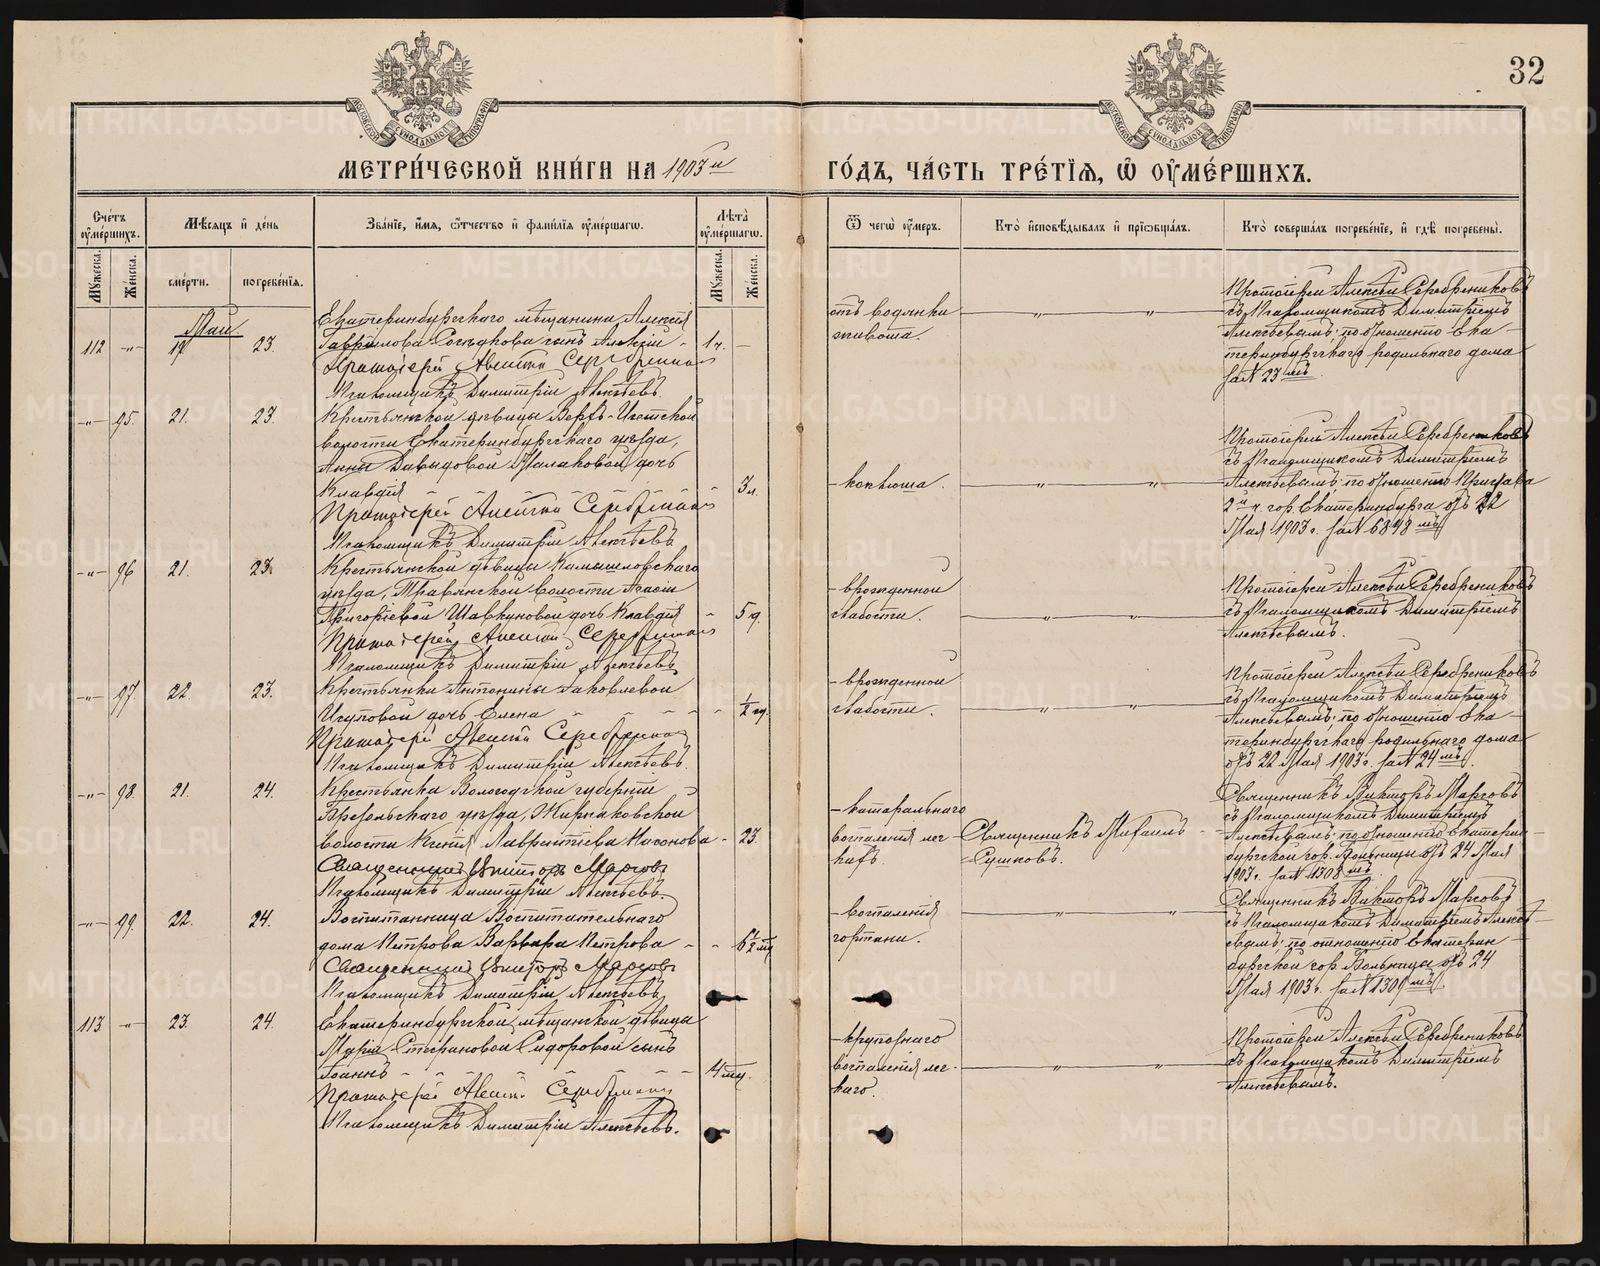 32
МЕТРИ́ЧЕСКОЙ КНИ́ГИ НА 1903й
ГО́ДЪ, ЧА́СТЬ ТРЕ́ТІѦ, Ѽ ОУ҆МЕ́РШИХЪ.
Сче́тъ оу҆ме́ршихъ.
Мѣ́сяцъ и҆ де́нь
Зва́ніе, и҆́мя, ѻ҆́тчество и҆ фами́лія оу҆ме́ршагѡ.
Лѣта̀ оу҆ме́ршагѡ.
Ѿ чегѡ̀ оу҆́меръ.
Кто̀ и҆сповѣ́дывалъ и҆ прїѡбща́лъ.
Кто̀ соверша́лъ погребе́ніе, и҆ гдѣ̀ погребены̀.
Му́жеска.
Же́нска.
сме́рти.
погребе́нія.
Му́жеска.
Же́нска.
Май
112 -„- 17 23.
Екатеринбургскаго мѣщанина Алексія
Гаврилова сынъ Алексій - 1 ч. -
Протоіерей Алексій Серебренниковъ
Псаломщикъ Димитрій Алексѣевъ.
отъ водянки
живота.
„ „
Протоіерей Алексѣй Серебрениковъ
съ Псаломщикомъ Димитріемъ
Алексѣевымъ; по отношенію Ека-
теринбургскаго родильнаго дома
за № 23 мъ.
-„- 95. 21. 23.
Крестьянской дѣвицы Верхъ-Исетской
волости Екатеринбургскаго уѣзда,
Анны Давыдовой Малаховой дочь
Клавдія - - - - - 3 л.
Протоіерей Алексій Серебренниковъ
Псаломщикъ Димитрій Алексѣевъ
- коклюша.
„ „
Протоіерей Алексѣй Серебрениковъ
съ Псаломщикомъ Димитріемъ
Алексѣевымъ; по отношенію Пристава
2й ч. гор. Екатеринбурга отъ 22
Мая 1903 г. за № 6898 мъ.
-„- 96 21. 23.
Крестьянской дѣвицы Камышловскаго
уѣзда, Травянской волости Агасіи
Григоріевой Шавкуновой дочь Клавдія - 5 д.
Протоіерей Алексій Серебренниковъ
Псаломщикъ Димитрій Алексѣевъ
- врожденной
слабости.
„ „
Протоіерей Алексѣй Серебрениковъ
съ Псаломщикомъ Димитріемъ
Алексѣевымъ.
-„- 97 22. 23.
Крестьянки Антонины Іаковлевой
дочь Елена - - - - - ½ ч.
Протоіерей Алексій Серебренниковъ
Псаломщикъ Димитрій Алексѣевъ.
- врожденной
слабости.
„ „
Протоіерей Алексѣй Серебрениковъ
съ Псаломщикомъ Димитріемъ
Алексѣевымъ; по отношенію Ека-
теринбургскаго родильнаго дома
отъ 22 Мая 1903 г. за № 24 мъ.
-„- 98. 21. 24.
Крестьянка Вологодской губерніи
уѣзда,
волости Ксенія Лаврентіева Насонова - 23.
Священникъ Викторъ Марсовъ
Псаломщикъ Димитрій Алексѣевъ.
- катаральнаго
воспаленія лег-
кихъ.
Священникъ Михаилъ
Сушковъ.
Священникъ Викторъ Марсовъ
съ Псаломщикомъ Димитріемъ
Алексѣевымъ; по отношенію Екатерин-
бургской гор. больницы отъ 24 Мая
1903 г. за № 1308 мъ.
-„- 99. 22. 24.
Воспитанница Воспитательнаго
дома Петрова Варвара Петрова - - 6½ мц
Священникъ Викторъ Марсовъ
Псаломщикъ Димитрій Алексѣевъ
- воспаленія
гортани.
„ „
Священникъ Викторъ Марсовъ
съ Псаломщикомъ Димитріемъ Алексѣ-
евымъ; по отношенію Екатерин-
бургской гор. Больницы отъ 24
Мая 1903 г. за № 1309 мъ.
113 -„- 23. 24.
Екатеринбургской мѣщанской дѣвицы
Маріи Стефановой Сидоровой сынъ
Іоаннъ - - - - - 4 мц.
Протоіерей Алексій Серебренниковъ
Псаломщикъ Димитрій Алексѣевъ.
- крупознаго
воспаленія лег-
каго.
„ „
Протоіерей Алексѣй Серебрениковъ
съ Псаломщикомъ Димитріемъ
Алексѣевымъ.
METRIKI.GASO-URAL.RU